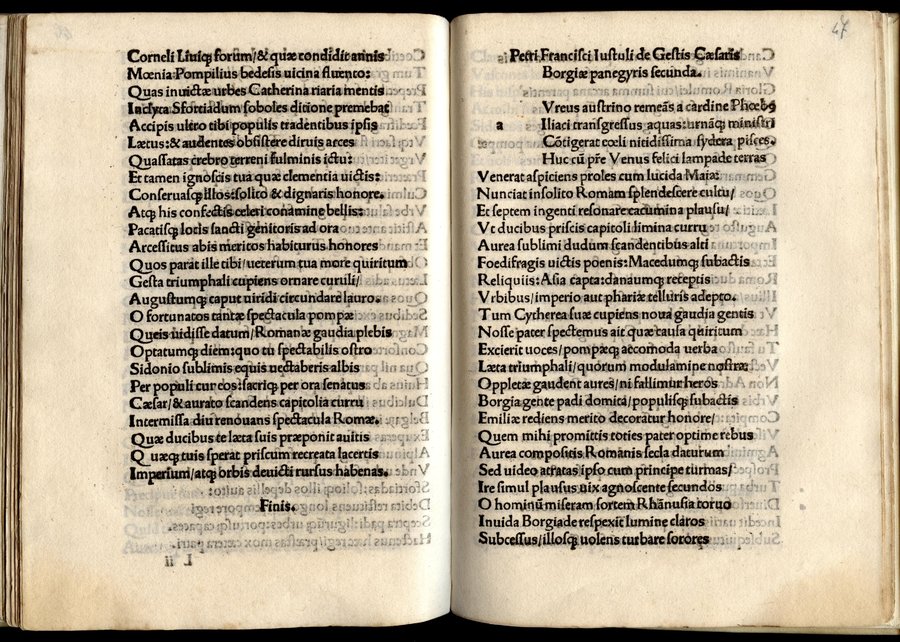 Corneli Liuiq; forum/& quæ condidit annis
Mœnia Pompilius bedesis uicina fluento:
Quas inuictæ urbes Catherina riaria mentis
Inclyta Sfortiadum soboles ditione premebat
Accipis ultro tibi populis tradentibus ipsis
Lætus:& audentes obsistere diruis arces
Quassatas crebro terreni fulminis ictu:
Et tamen ignoscis tua quæ clementia uictis:
Conseruasq; illos:solito & dignaris honore.
Atq; his confectis celeri conamine bellis:
Pacatisq; locis sancti genitoris ad ora
Arcessitus abis meritos habiturus honores
Quos parat ille tibi/ueterum tua more quiritum
Gesta triumphali cupiens ornare curuli/
Augustumq; caput uiridi circundare lauro.
O fortunatos tantæ spectacula pompæ
Queis uidisse datum/Romanæ gaudia plebis
Optatumq; diem:quo tu spectabilis ostro
Sidonio sublimis equis uectaberis albis
Per populi cur eos:sacriq; per ora senatus
Cæsar/& aurato scandens capitolia curru
Intermissa diu renouans spectacula Romæ.
Quæ ducibus te læta suis præponit auitis
Quæq; tuis sperat priscum recreata lacertis
Imperium/atq; orbis deuicti rursus habenas.
Finis.
47
Petri Francisci Iustuli de Gestis Cæsaris
Borgiæ panegyris secunda.
a
Vreus austrino remeãs a cardine Phœbꝰ
Iliaci transgressus aquas:urnãq; ministri
Cõtigerat cœli nitidissima sydera pisces.
Huc cũ pr̃e Venus felici lampade terras
Venerat aspiciens proles cum lucida Maiæ
Nunciat insolito Romam splendescere cultu/
Et septem ingenti resonare cacumina plausu/
Vt ducibus priscis capitoli limina curru
Aurea sublimi dudum scandentibus alti
Foedifragis uictis poenis:Macedumq; subactis
Reliquiis:Asia capta:danaumq; receptis
Vrbibus/imperio aut phariæ telluris adepto.
Tum Cytherea suæ cupiens noua gaudia gentis
Nosse pater spectemus ait quæ causa quiritum
Excierit uoces/pompæq; accomoda uerba
Læta triumphali/quorum modulamine nostræ
Oppletæ gaudent aures/ni fallimur heros
Borgia gente padi domita/populisq; subactis
Emiliæ rediens merito decoratur honore/
Quem mihi promittis toties pater optime rebus
Aurea compositis Romanis secla daturum
Sed uideo atratas ipso cum principe turmas/
Ire simul plausus uix agnoscente secundos
O hominũ miseram fortem Rhãnusia toruo
Inuida Borgiadę respexit lumine claros
Subcessus/illosq; uolens turbare sorores